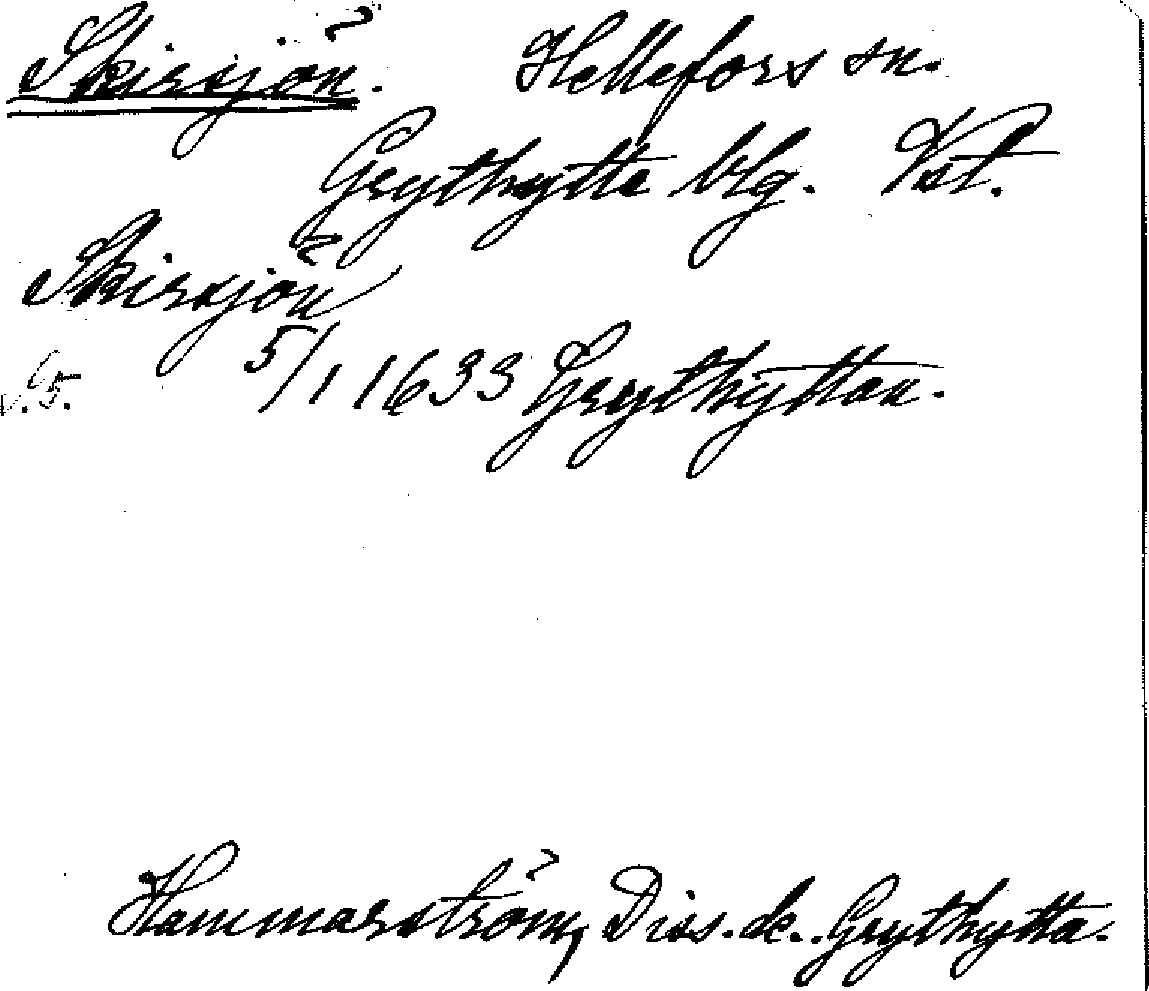 Skirsjön. Hellefors sn.
Grythytte blg. Vstl.
Skirsjön
5/1 1633 Grythyttan.
Hammarström, Diss. de. Grythytta.